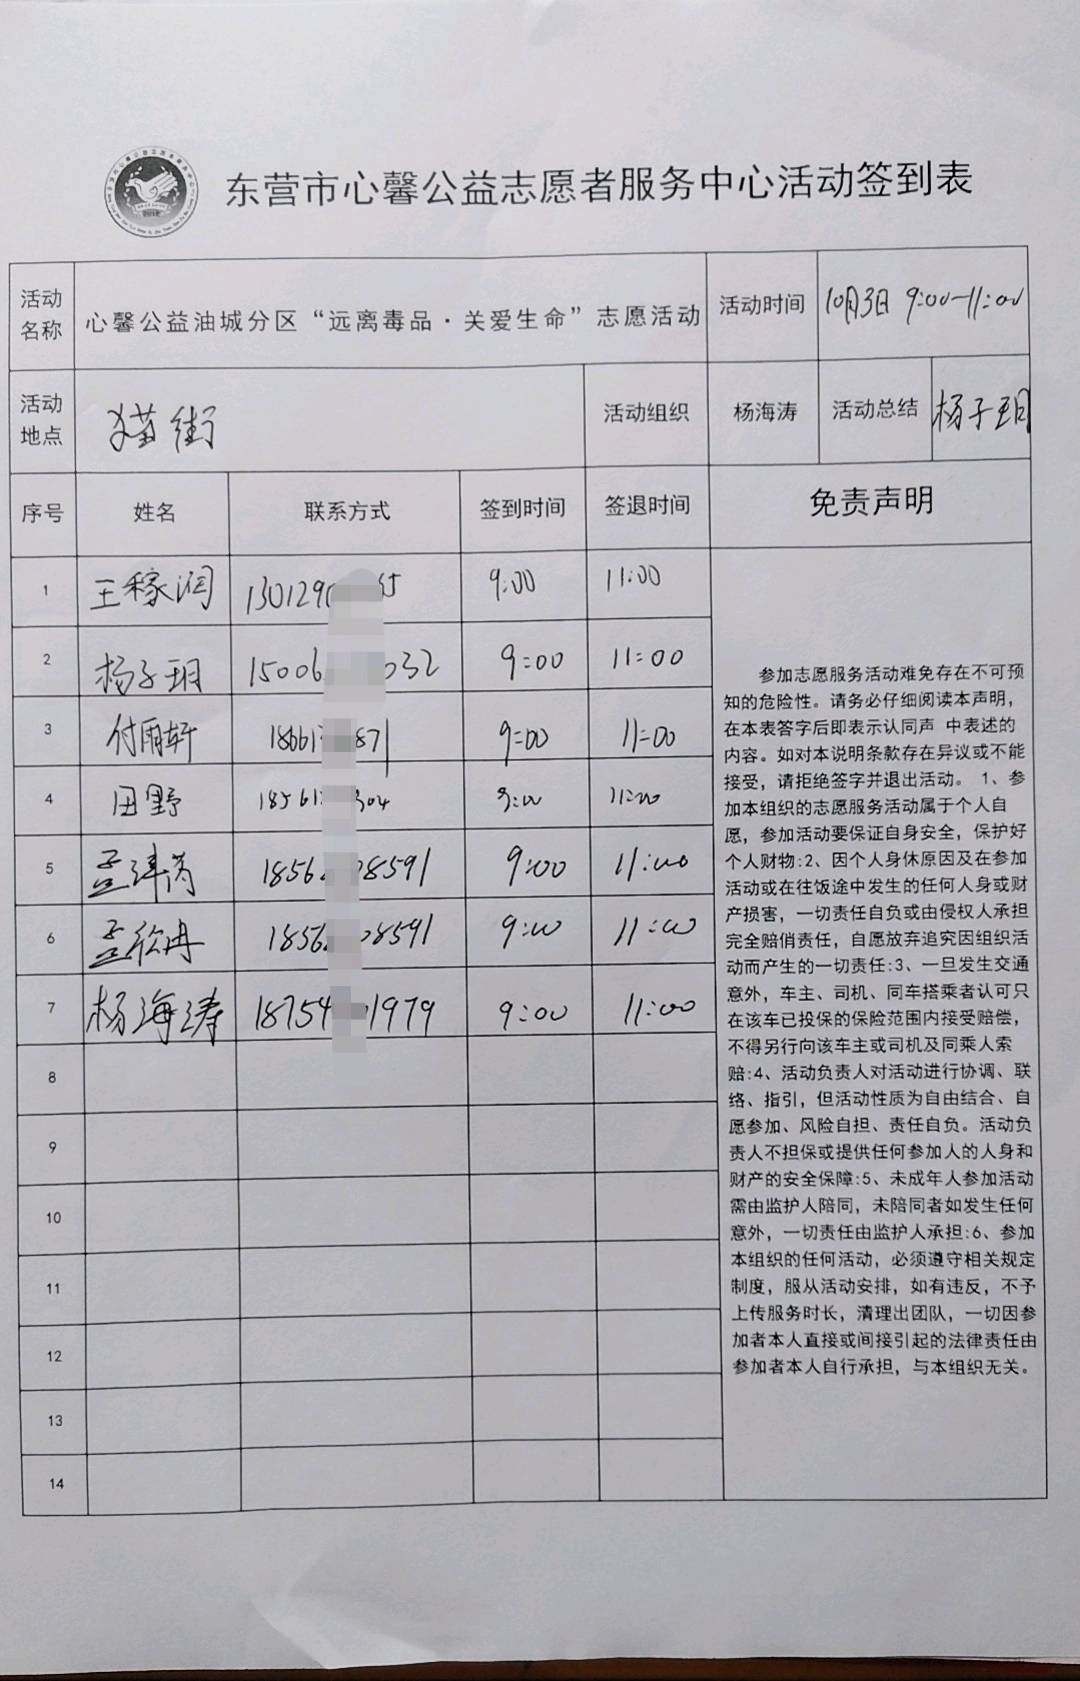 东营市心馨公益志愿者服务中心活动签到表
活动名称 心馨公益油城分区“远离毒品·关爱生命”志愿活动 活动时间 10月3日 9:00-11:00
活动地点 猫街 活动组织 杨海涛 活动总结 杨子玥
序号 姓名 联系方式 签到时间 签退时间 免责声明
1 王稼润 1301290 5 9:00 11:00
2 杨子玥 15006 032 9:00 11:00
3 付雨轩 18661 871 9:00 11:00
4 田野 18561 304 9:00 11:00
5 孟 芮 1856 8591 9:00 11:00
6 孟欣冉 1856 08591 9:00 11:00
7 杨海涛 18754 1979 9:00 11:00
8
9
10
11
12
13
14
参加志愿服务活动难免存在不可预
知的危险性。请务必仔细阅读本声明，
在本表答字后即表示认同声 中表述的
内容。如对本说明条款存在异议或不能
接受，请拒绝签字并退出活动。 1、参
加本组织的志愿服务活动属于个人自
愿，参加活动要保证自身安全，保护好
个人财物:2、因个人身休原因及在参加
活动或在往饭途中发生的任何人身或财
产损害，一切责任自负或由侵权人承担
完全赔俏责任，自愿放弃追究因组织活
动而产生的一切责任:3、一旦发生交通
意外，车主、司机、同车搭乘者认可只
在该车已投保的保险范围内接受赔偿，
不得另行向该车主或司机及同乘人索
赔:4、活动负责人对活动进行协调、联
络、指引，但活动性质为自由结合、自
愿参加、风险自担、责任自负。活动负
责人不担保或提供任何参加人的人身和
财产的安全保障:5、未成年人参加活动
需由监护人陪同，未陪同者如发生任何
意外，一切责任由监护人承担:6、参加
本组织的任何活动，必须遵守相关规定
制度，服从活动安排，如有违反，不予
上传服务时长，清理出团队，一切因参
加者本人直接或间接引起的法律责任由
参加者本人自行承担，与本组织无关。